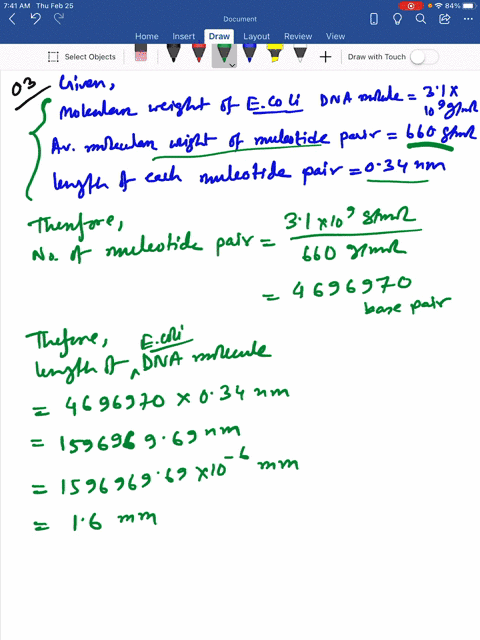 7:41 AM Thu Feb 25
84%
Document
Home Insert Draw Layout Review View
Select Objects
Draw with Touch
03 Given,
Molecular weight of E.Coli DNA molecule = 3.1 x 10⁹ g/mol
Av. molecular weight of nucleotide pair = 660 g/mol
length of each nucleotide pair = 0.34 nm
Therefore,
No. of nucleotide pair = 3.1 x 10⁹ g/mol / 660 g/mol
= 4696970 base pair
Thefore,
length of E.coli DNA molecule
= 4696970 x 0.34 nm
= 1596969.69 nm
= 1596969.69 x 10⁻⁶ mm
= 1.6 mm